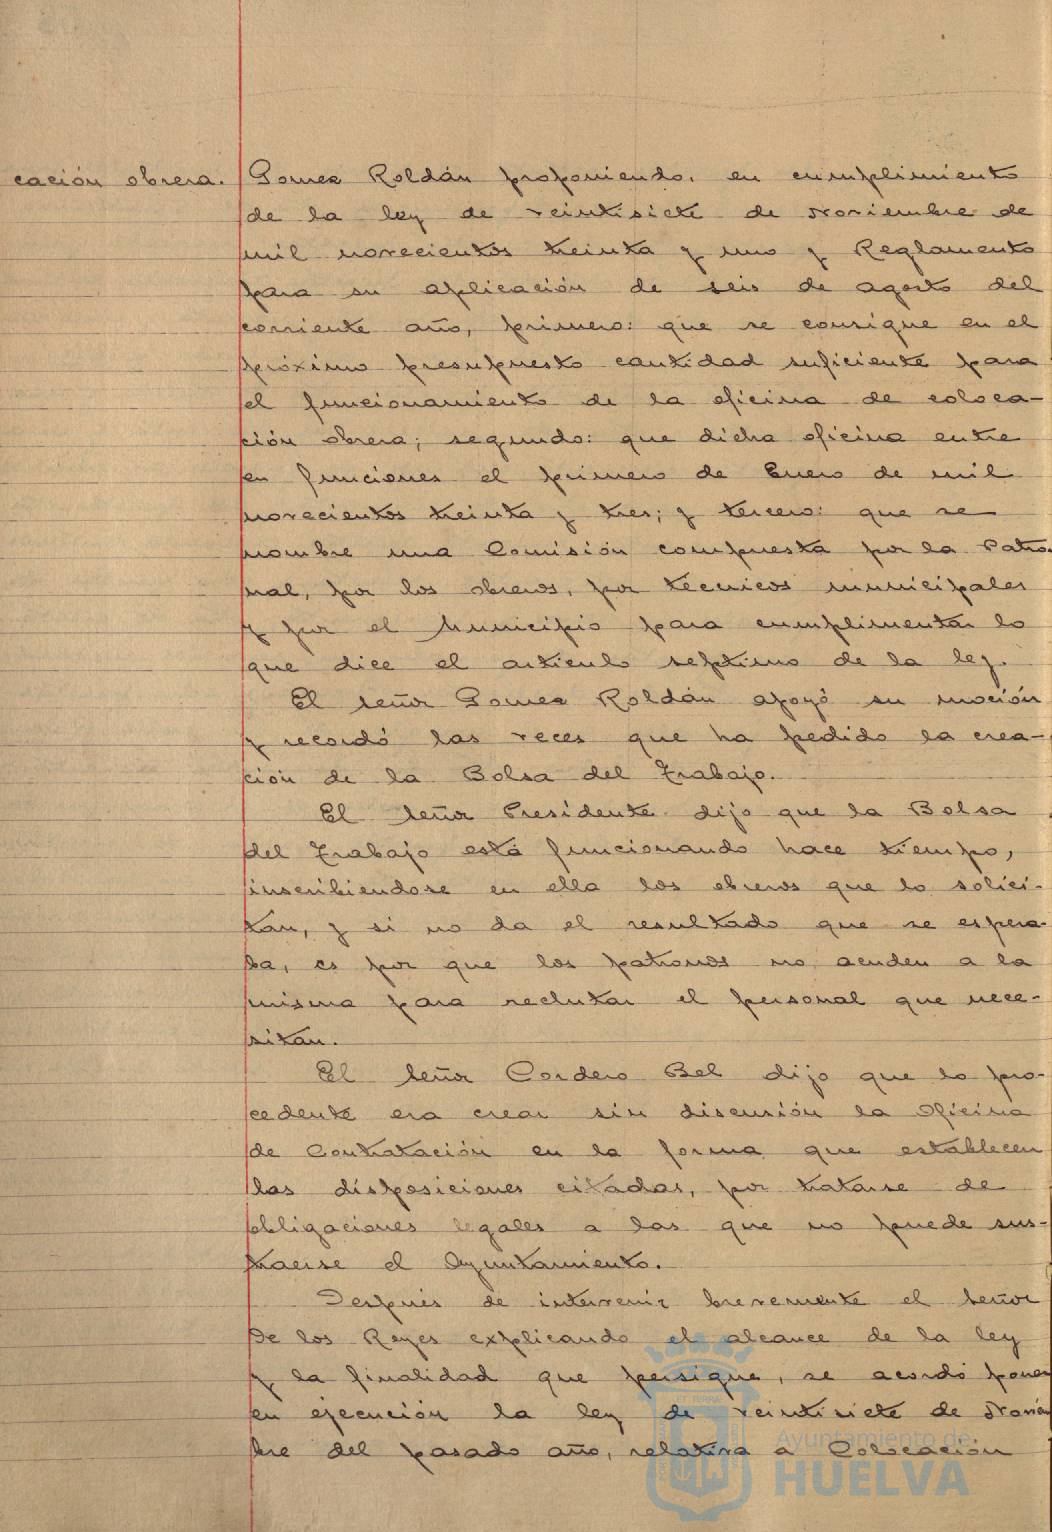 cación obrera.
Gomez Roldán proponiendo, en cumplimiento
de la ley de veintisiete de Noviembre de
mil novecientos treinta y uno y Reglamento
para su aplicación de seis de agosto del
corriente año, primero: que se consigne en el
próximo presupuesto cantidad suficiente para
el funcionamiento de la oficina de coloca-
ción obrera; segundo: que dicha oficina entre
en funciones el primero de Enero de mil
novecientos treinta y tres; y tercero: que se
nombre una Comisión compuesta por la Patro-
nal, por los obreros, por tecnicos municipales
y por el Municipio para cumplimentar lo
que dice el articulo septimo de la ley.
El señor Gomez Roldán apoyó su moción
y recordó las veces que ha pedido la crea-
ción de la Bolsa del Trabajo.
El señor Presidente dijo que la Bolsa
del Trabajo está funcionando hace tiempo,
inscribiendose en ella los obreros que lo solici-
tan, y si no da el resultado que se espera-
ba, es por que los patronos no acuden a la
misma para reclutar el personal que nece-
sitan.
El señor Cordero Bel dijo que lo pro-
cedente era crear sin discusión la Oficina
de Contratación en la forma que establecen
las disposiciones citadas, por tratarse de
obligaciones legales a las que no puede sus-
traerse el Ayuntamiento.
Después de intervenir brevemente el señor
De los Reyes explicando el alcance de la ley
y la finalidad que persigue, se acordó poner
en ejecución la ley de veintisiete de Noviem
bre del pasado año, relativa a Colocación
Ayuntamiento de
HUELVA